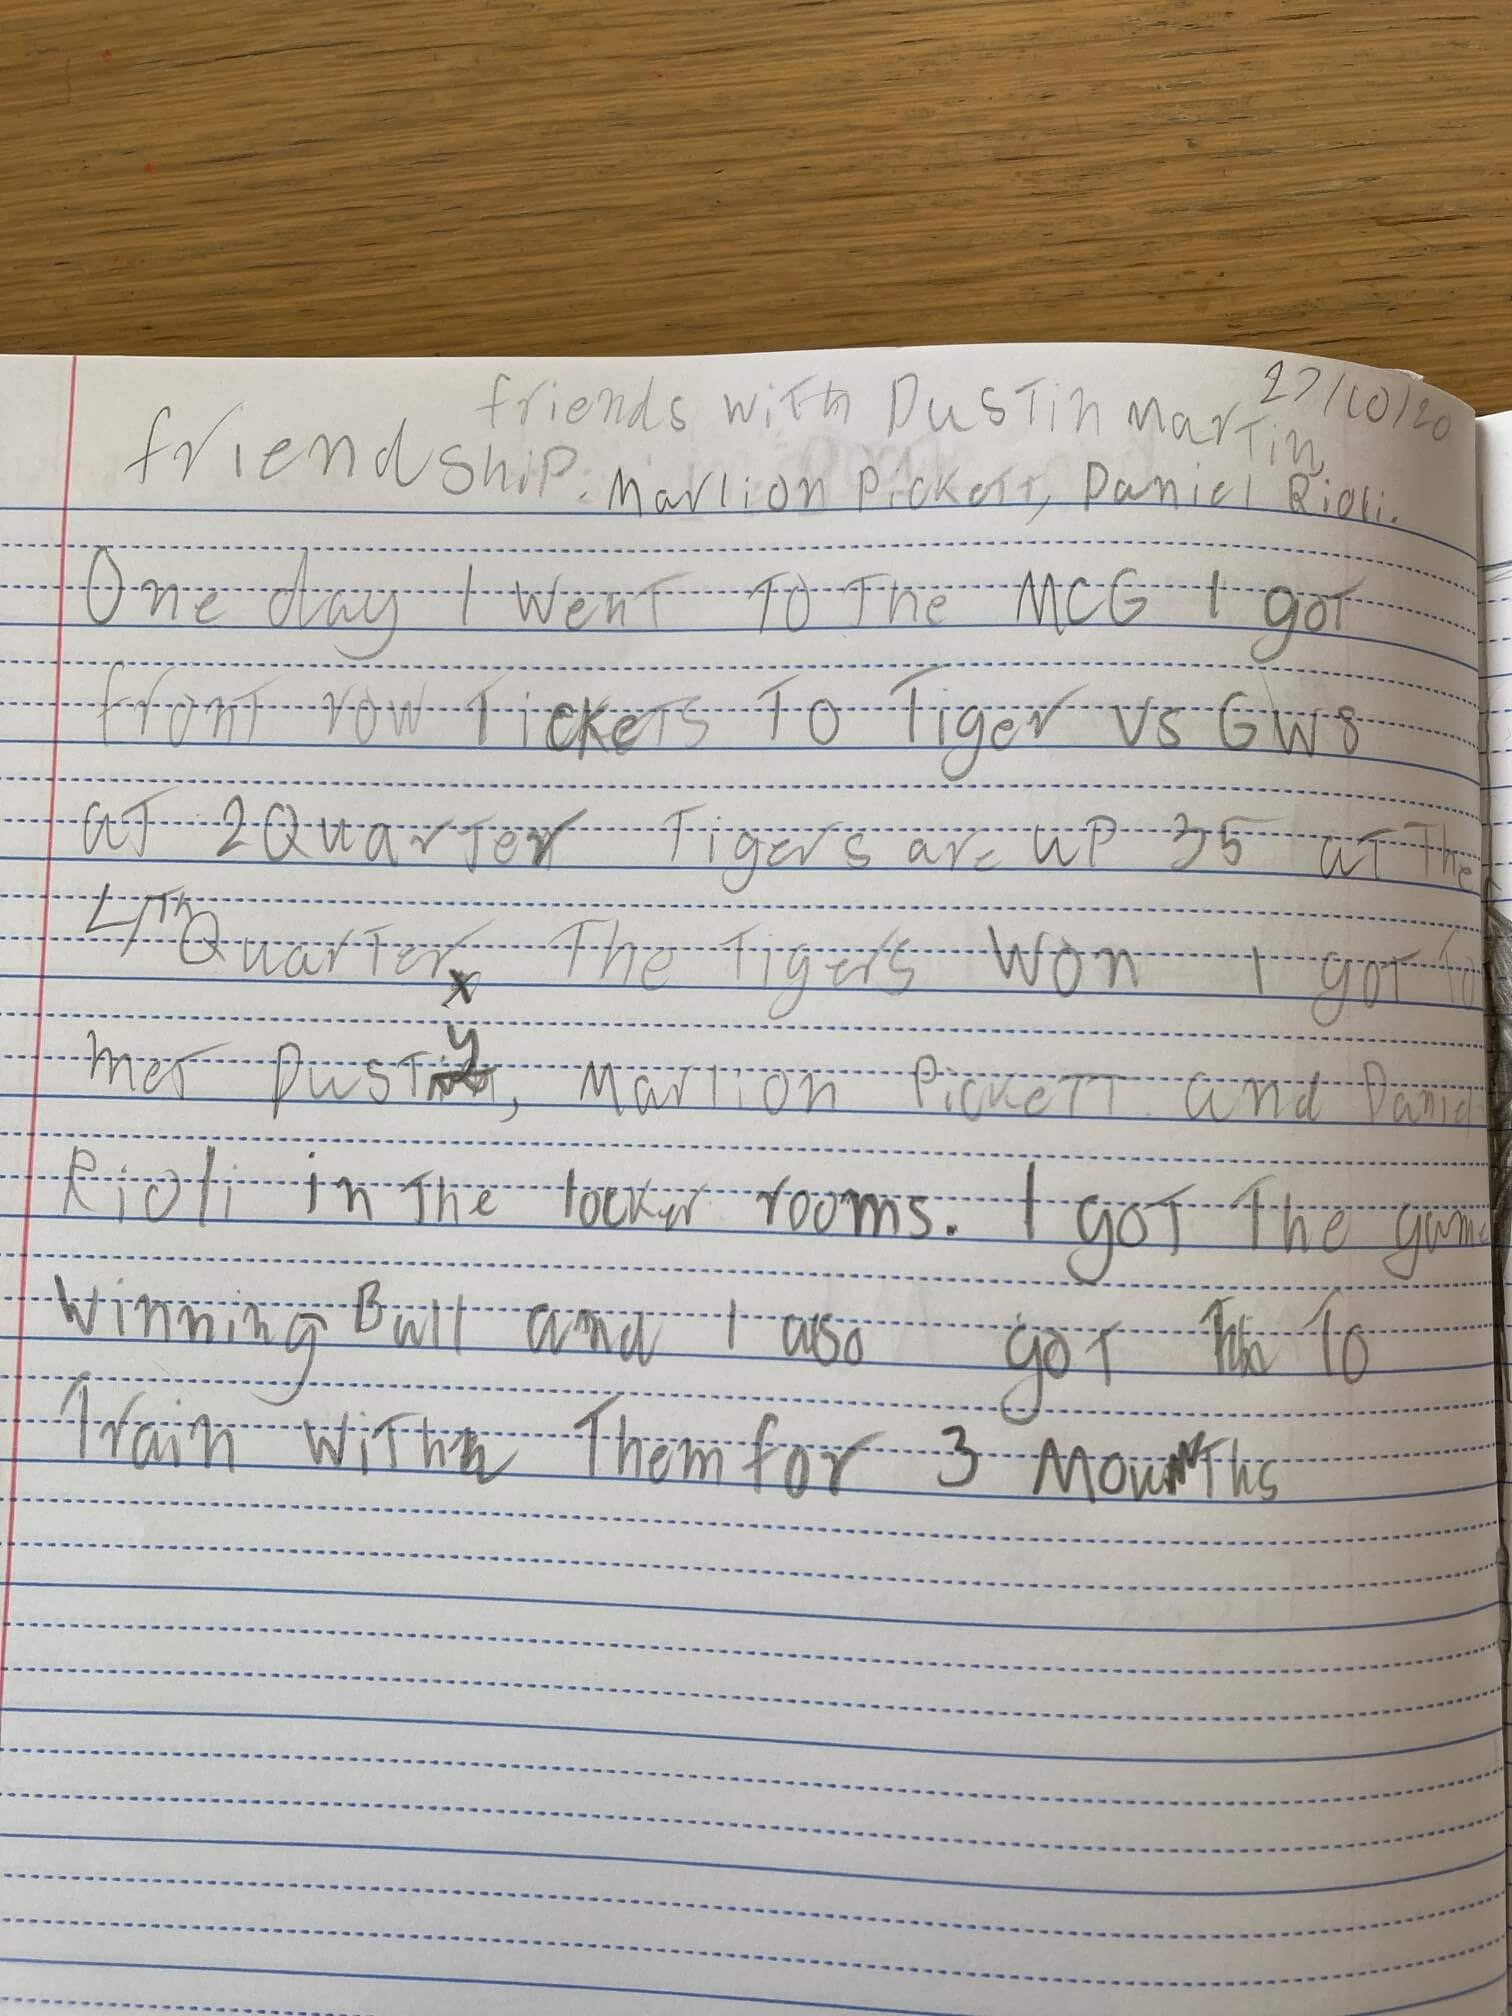 27/10/20
friends with Dustin Martin,
friendship. Marlion Pickett, Daniel Rioli.
One day I went to the MCG I got
front row tickets to Tiger vs GWS
at 2 Quarter Tigers are up 35 at the
4th Quarter The Tigers won I got to
met Dusty, Marlion Pickett and Daniel
Rioli in the locker rooms. I got the game
winning Ball and I also got to
train with them for 3 Mounths